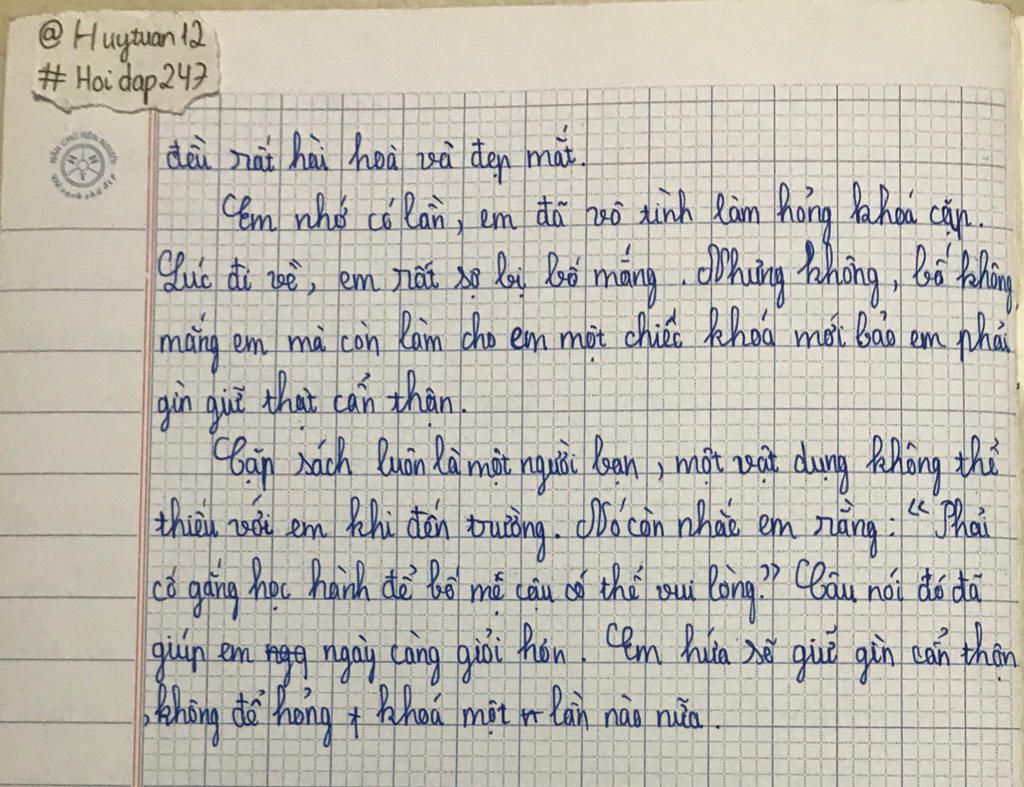 @ Huytuan12
# Hoidap247
đều rất hài hoà và đẹp mắt.
Em nhớ có lần, em đã vô tình làm hỏng khoá cặp.
Lúc đi về, em rất sợ bị bố mắng. Nhưng không, bố không
mắng em mà còn làm cho em một chiếc khoá mới bảo em phải
gìn giữ thật cẩn thận.
Cặp sách luôn là một người bạn, một vật dụng không thể
thiếu với em khi đến trường. Nó còn nhắc em rằng: “Phải
cố gắng học hành để bố mẹ cậu có thể vui lòng.” Câu nói đó đã
giúp em ngày càng giỏi hơn. Em hứa sẽ giữ gìn cẩn thận
, không để hỏng khoá một lần nào nữa.